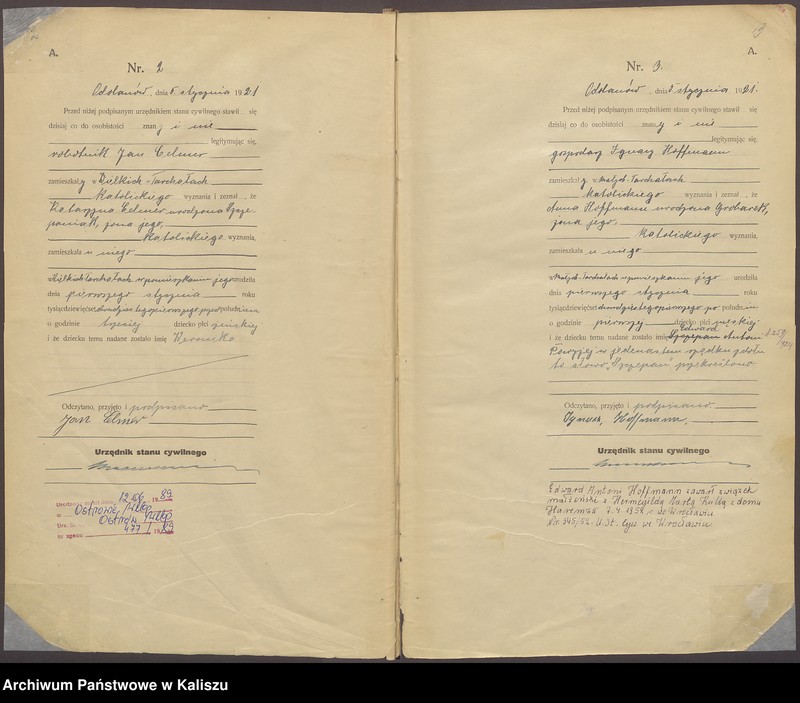 A.
Nr. 2
Odolanów, dnia 5 stycznia 1921
Przed niżej podpisanym urzędnikiem stanu cywilnego stawił się
dzisiaj co do osobistości znany i nie
legitymując się,
robotnik Jan Celmer
zamieszkały w Wielkich-Tarchałach
katolickiego wyznania i zeznał, że
Katarzyna Celmer urodzona Szcze-
paniak, żona jego,
katolickiego wyznania,
zamieszkała u niego
Wielkich Tarchałach w pomieszkaniu jego urodziła
dnia pierwszego stycznia roku
tysiącdziewięćset dwudziestego pierwszego przed południem
o godzinie trzeciej dziecko płci żeńskiej
i że dziecku temu nadane zostało imię Weronika
Odczytano, przyjęto i podpisano
Jan Celmer
Urzędnik stanu cywilnego
12.06 1989
Ostrowie/Wlkp
Ostrów/Wlkp
477/89
3
A.
Nr. 3.
Odolanów, dnia 5 stycznia 1921.
Przed niżej podpisanym urzędnikiem stanu cywilnego stawił się
dzisiaj co do osobistości znany i nie
legitymując się,
gospodarz Ignacy Hoffmann
zamieszkały w Małych-Tarchałach
katolickiego wyznania i zeznał, że
Anna Hoffmann urodzona
żona jego,
katolickiego wyznania,
zamieszkała u niego
w Małych-Tarchałach w pomieszkaniu jego urodziła
dnia pierwszego stycznia roku
tysiącdziewięćset dwudziestego pierwszego po południu
o godzinie pierwszej dziecko płci męskiej
Edward
i że dziecku temu nadane zostało imię Szczepan Antoni
Powyżej w jedenastem rządku zdołu
to słowo „Szczepan" przekreślono
Odczytano, przyjęto i podpisano
Ignacy Hoffmann
Urzędnik stanu cywilnego
Edward Antoni Hoffmann zawarł związek
małżeński z Hermegildą Martą Kulką z domu
7.4.1952 r. we Wrocławiu
Nr. 945/52. U.St. Cyw. we Wrocławiu
Archiwum Państwowe w Kaliszu